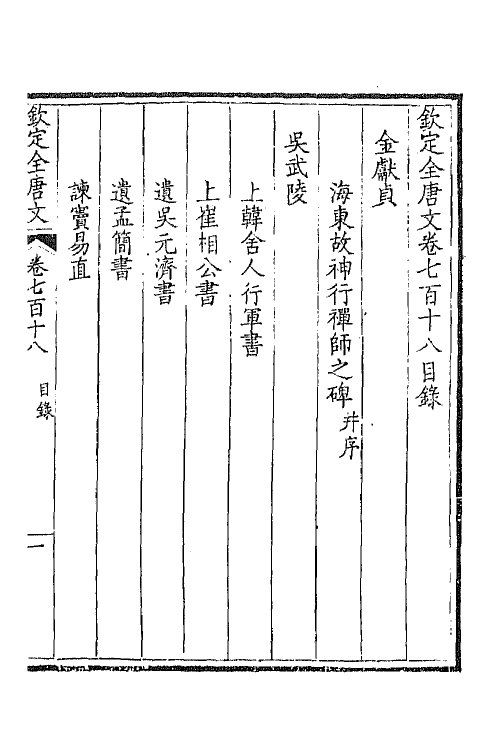 欽定全唐文卷七百十八目錄
金獻貞
海東故神行禪師之碑并序
吳武陵
上韓舍人行軍書
上崔相公書
遺吳元濟書
遺孟簡書
諫竇易直
欽定全唐文 卷七百十八 目錄 一